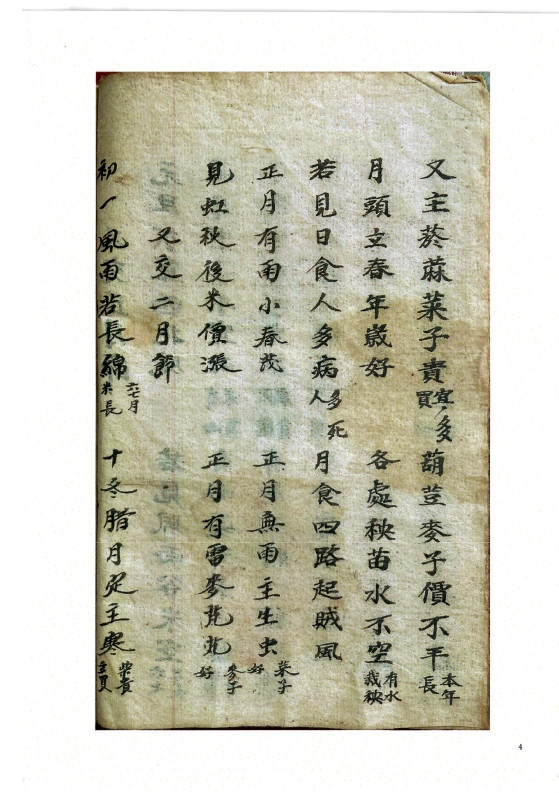 又主菸蔴菜子貴宜多買葫荳麥子價不平本年長
月頭立春年歲好各處秧苗水不空有水栽秧
若見日食人多病人多死月食四路起賊風
正月有雨小春茂正月無雨主生虫菜子好
見虹秋後米價漲正月有雷麥芃芃麥子好
元旦又交二月節
初一風雨若長綿六七月米長十冬腊月定主寒柴貴
4